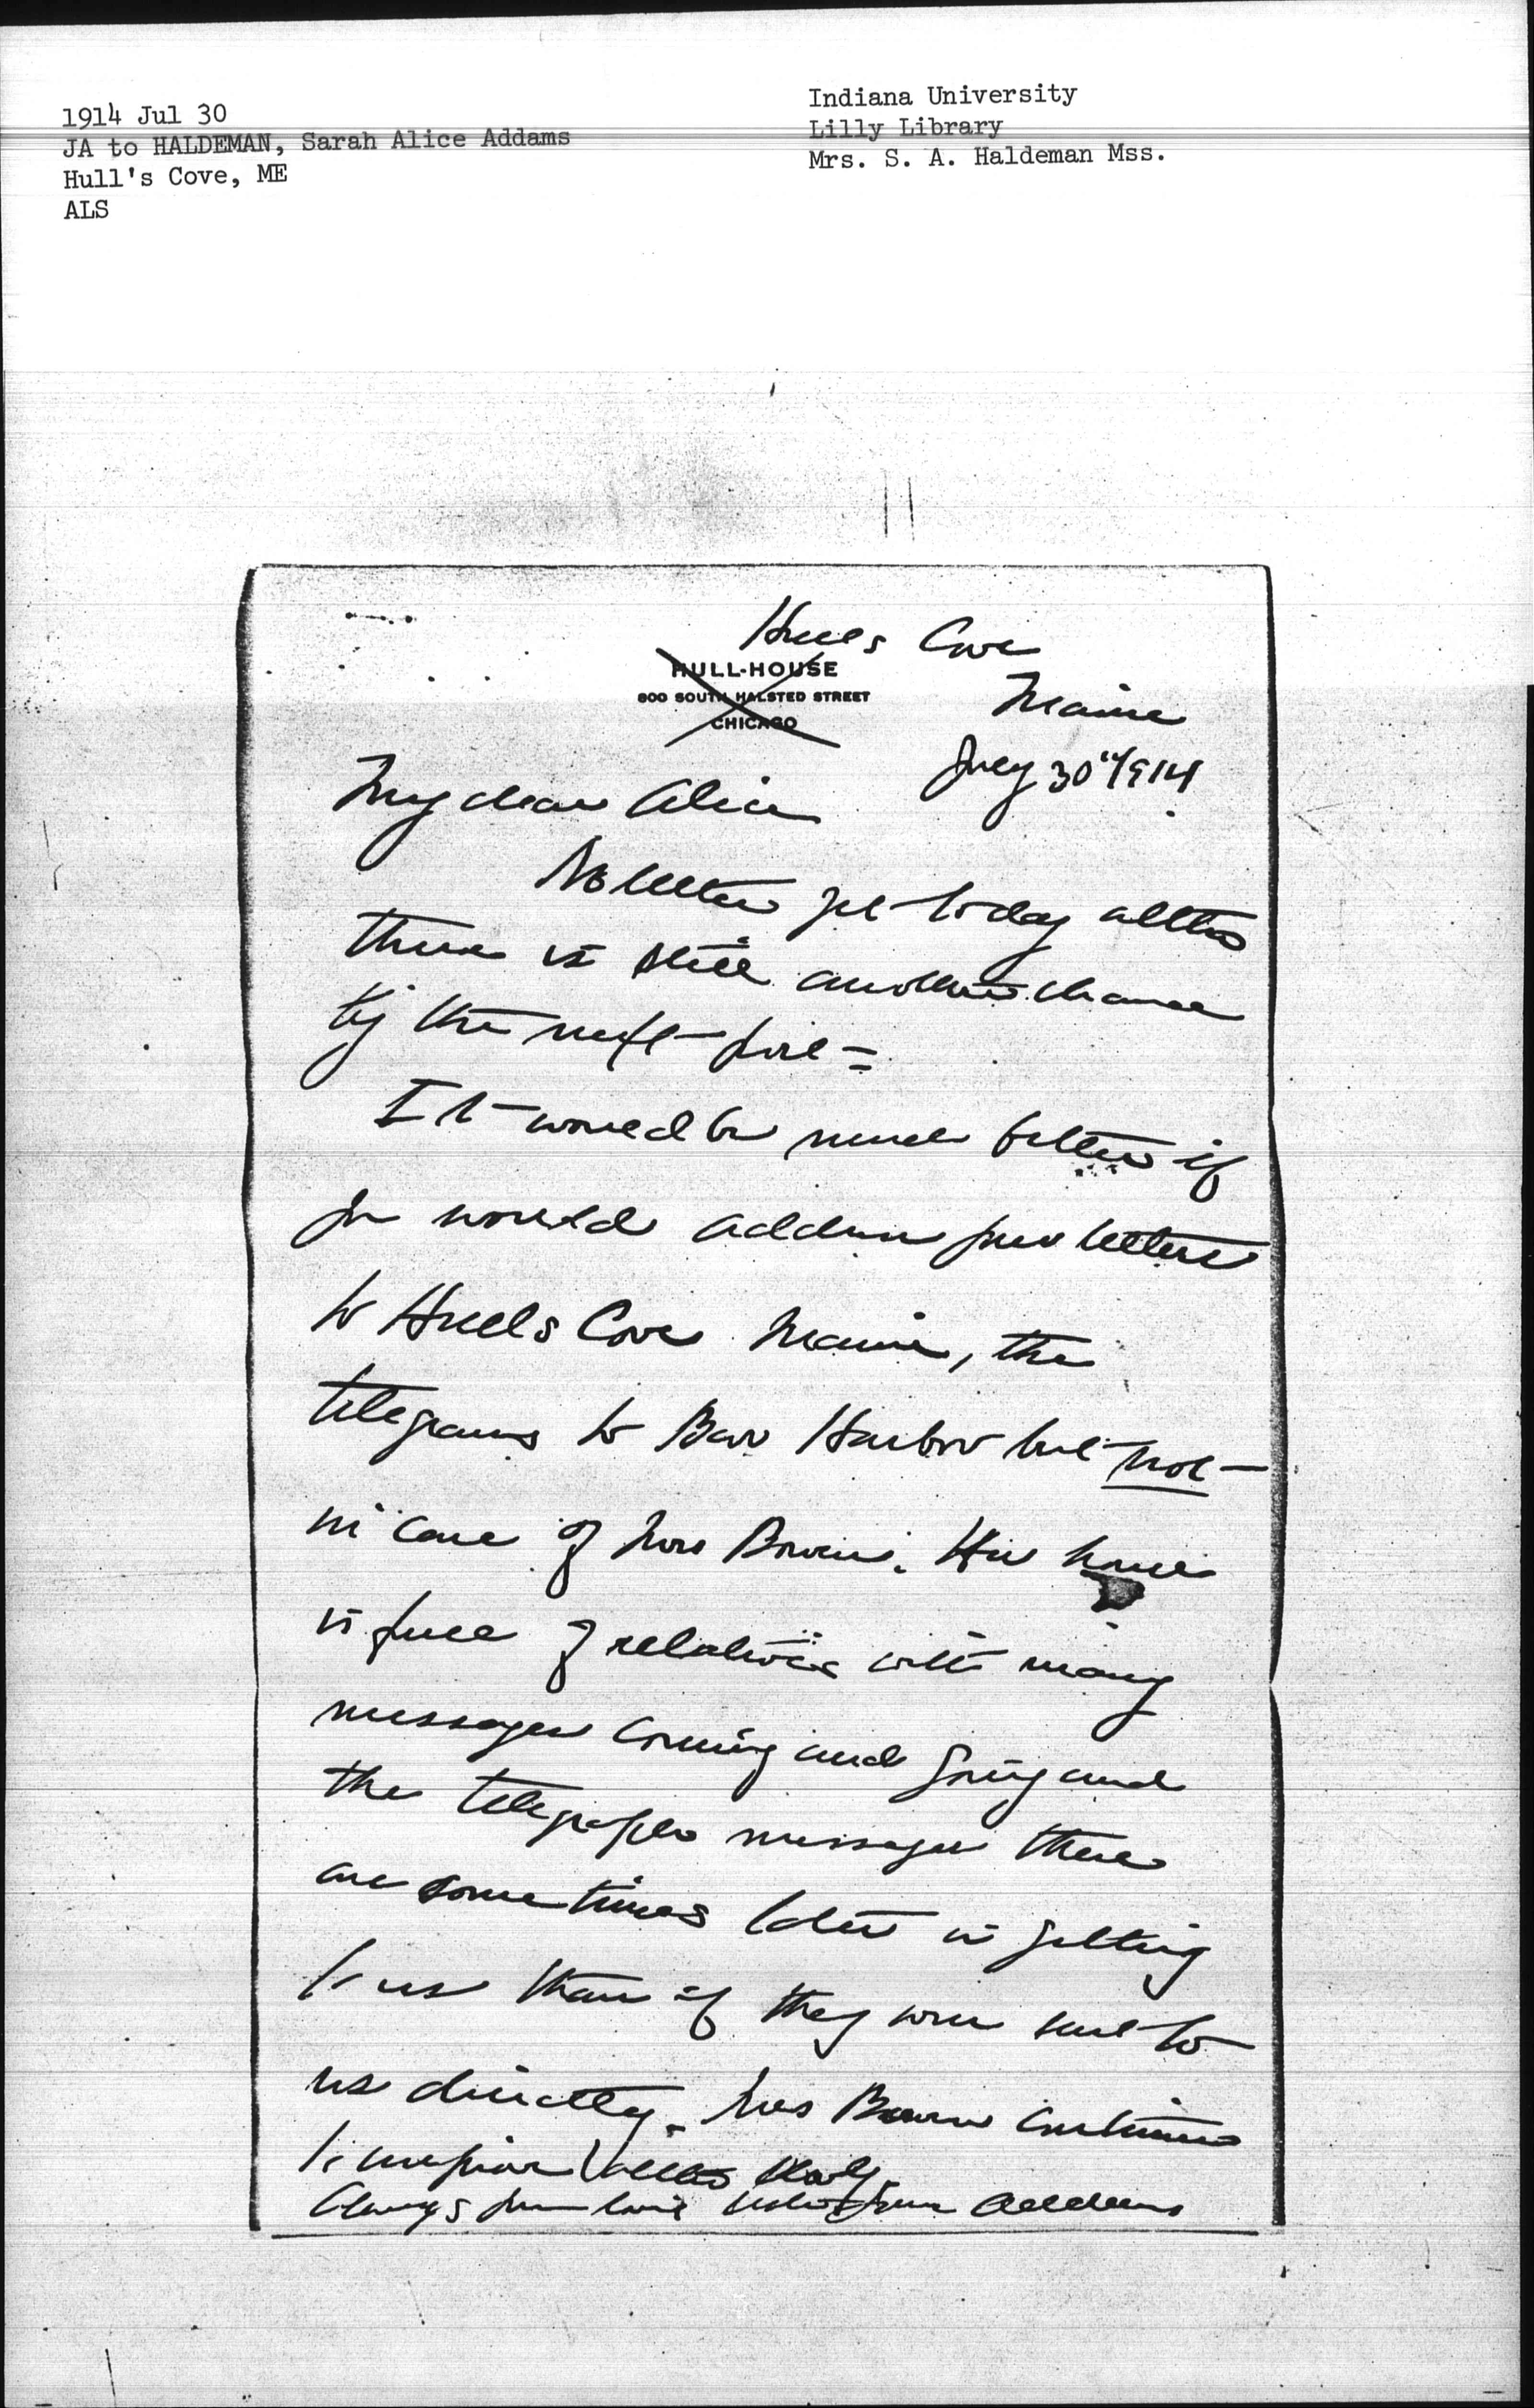 1914 Jul 30
JA to HALDEMAN, Sarah Alice Addams
Hull's Cove, ME
ALS
Indiana University
Lilly Library
Mrs. S. A. Haldeman Mss.
Hulls Cove
HULL-HOUSE
800 SOUTH HALSTED STREET
CHICAGO
Maine
July 30" 1914
My dear Alice
No letter yet today altho
there is still another chance
by the next post =
It would be much better if
you would address your letters
to Hulls Cove Maine, the
telegrams to Bar Harbor but not
in care of Mrs Bowen. Her house
is full of relatives with many
messages coming and going and
the telegraph messages there
are sometimes later in getting
to us than if they were sent to
us directly. Mrs Bowen continues
to improve altho slowly.
Always your loving sister Jane Addams